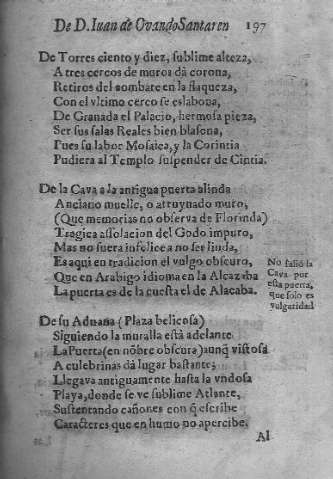 De D. Iuan de Ovando Santaren 197
De Torres ciento y diez, sublime alteza,
A tres cercos de muros dá corona,
Retiros del combate en la flaqueza,
Con el vltimo cerco se eslabona,
De Granada el Palacio, hermosa pieza,
Ser sus salas Reales bien blasona,
Pues su labor Mosaica, y la Corintia
Pudiera al Templo suspender de Cintia.
De la Cava a la antigua puerta alinda
Anciano muelle, o atruynado muro,
(Que memorias no observa de Florinda)
Tragica assolacion del Godo impuro,
Mas no fuera infelice a no ser linda,
Es aqui en tradicion el vulgo obscuro,
Que en Arabigo idioma en la Alcazaba
La puerta es de la cuesta el de Alacaba.
No salió la
Cava por
esta puerta,
que solo es
vulgaridad
De su Aduana (Plaza belicosa)
Siguiendo la muralla està adelante
La Puerta (en nōbre obscura) aunq̃ vistosa
A culebrinas dà lugar bastante;
Llegava antiguamente hasta la vndosa
Playa, donde se ve sublime Atlante,
Sustentando cañones con q̃ escribe
Caracteres que en humo no apercibe.
Al